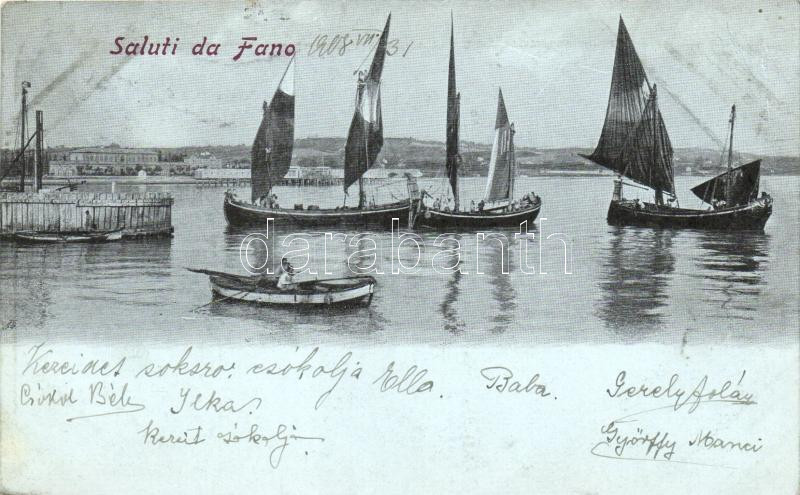 Saluti da Fano 1908 VII 31
darabanth
Kezeidet sokszor csókolja Ella. Baba.
Csókol Béla Ilka.
csókolja
Gerely Jolán
Györffy Manci